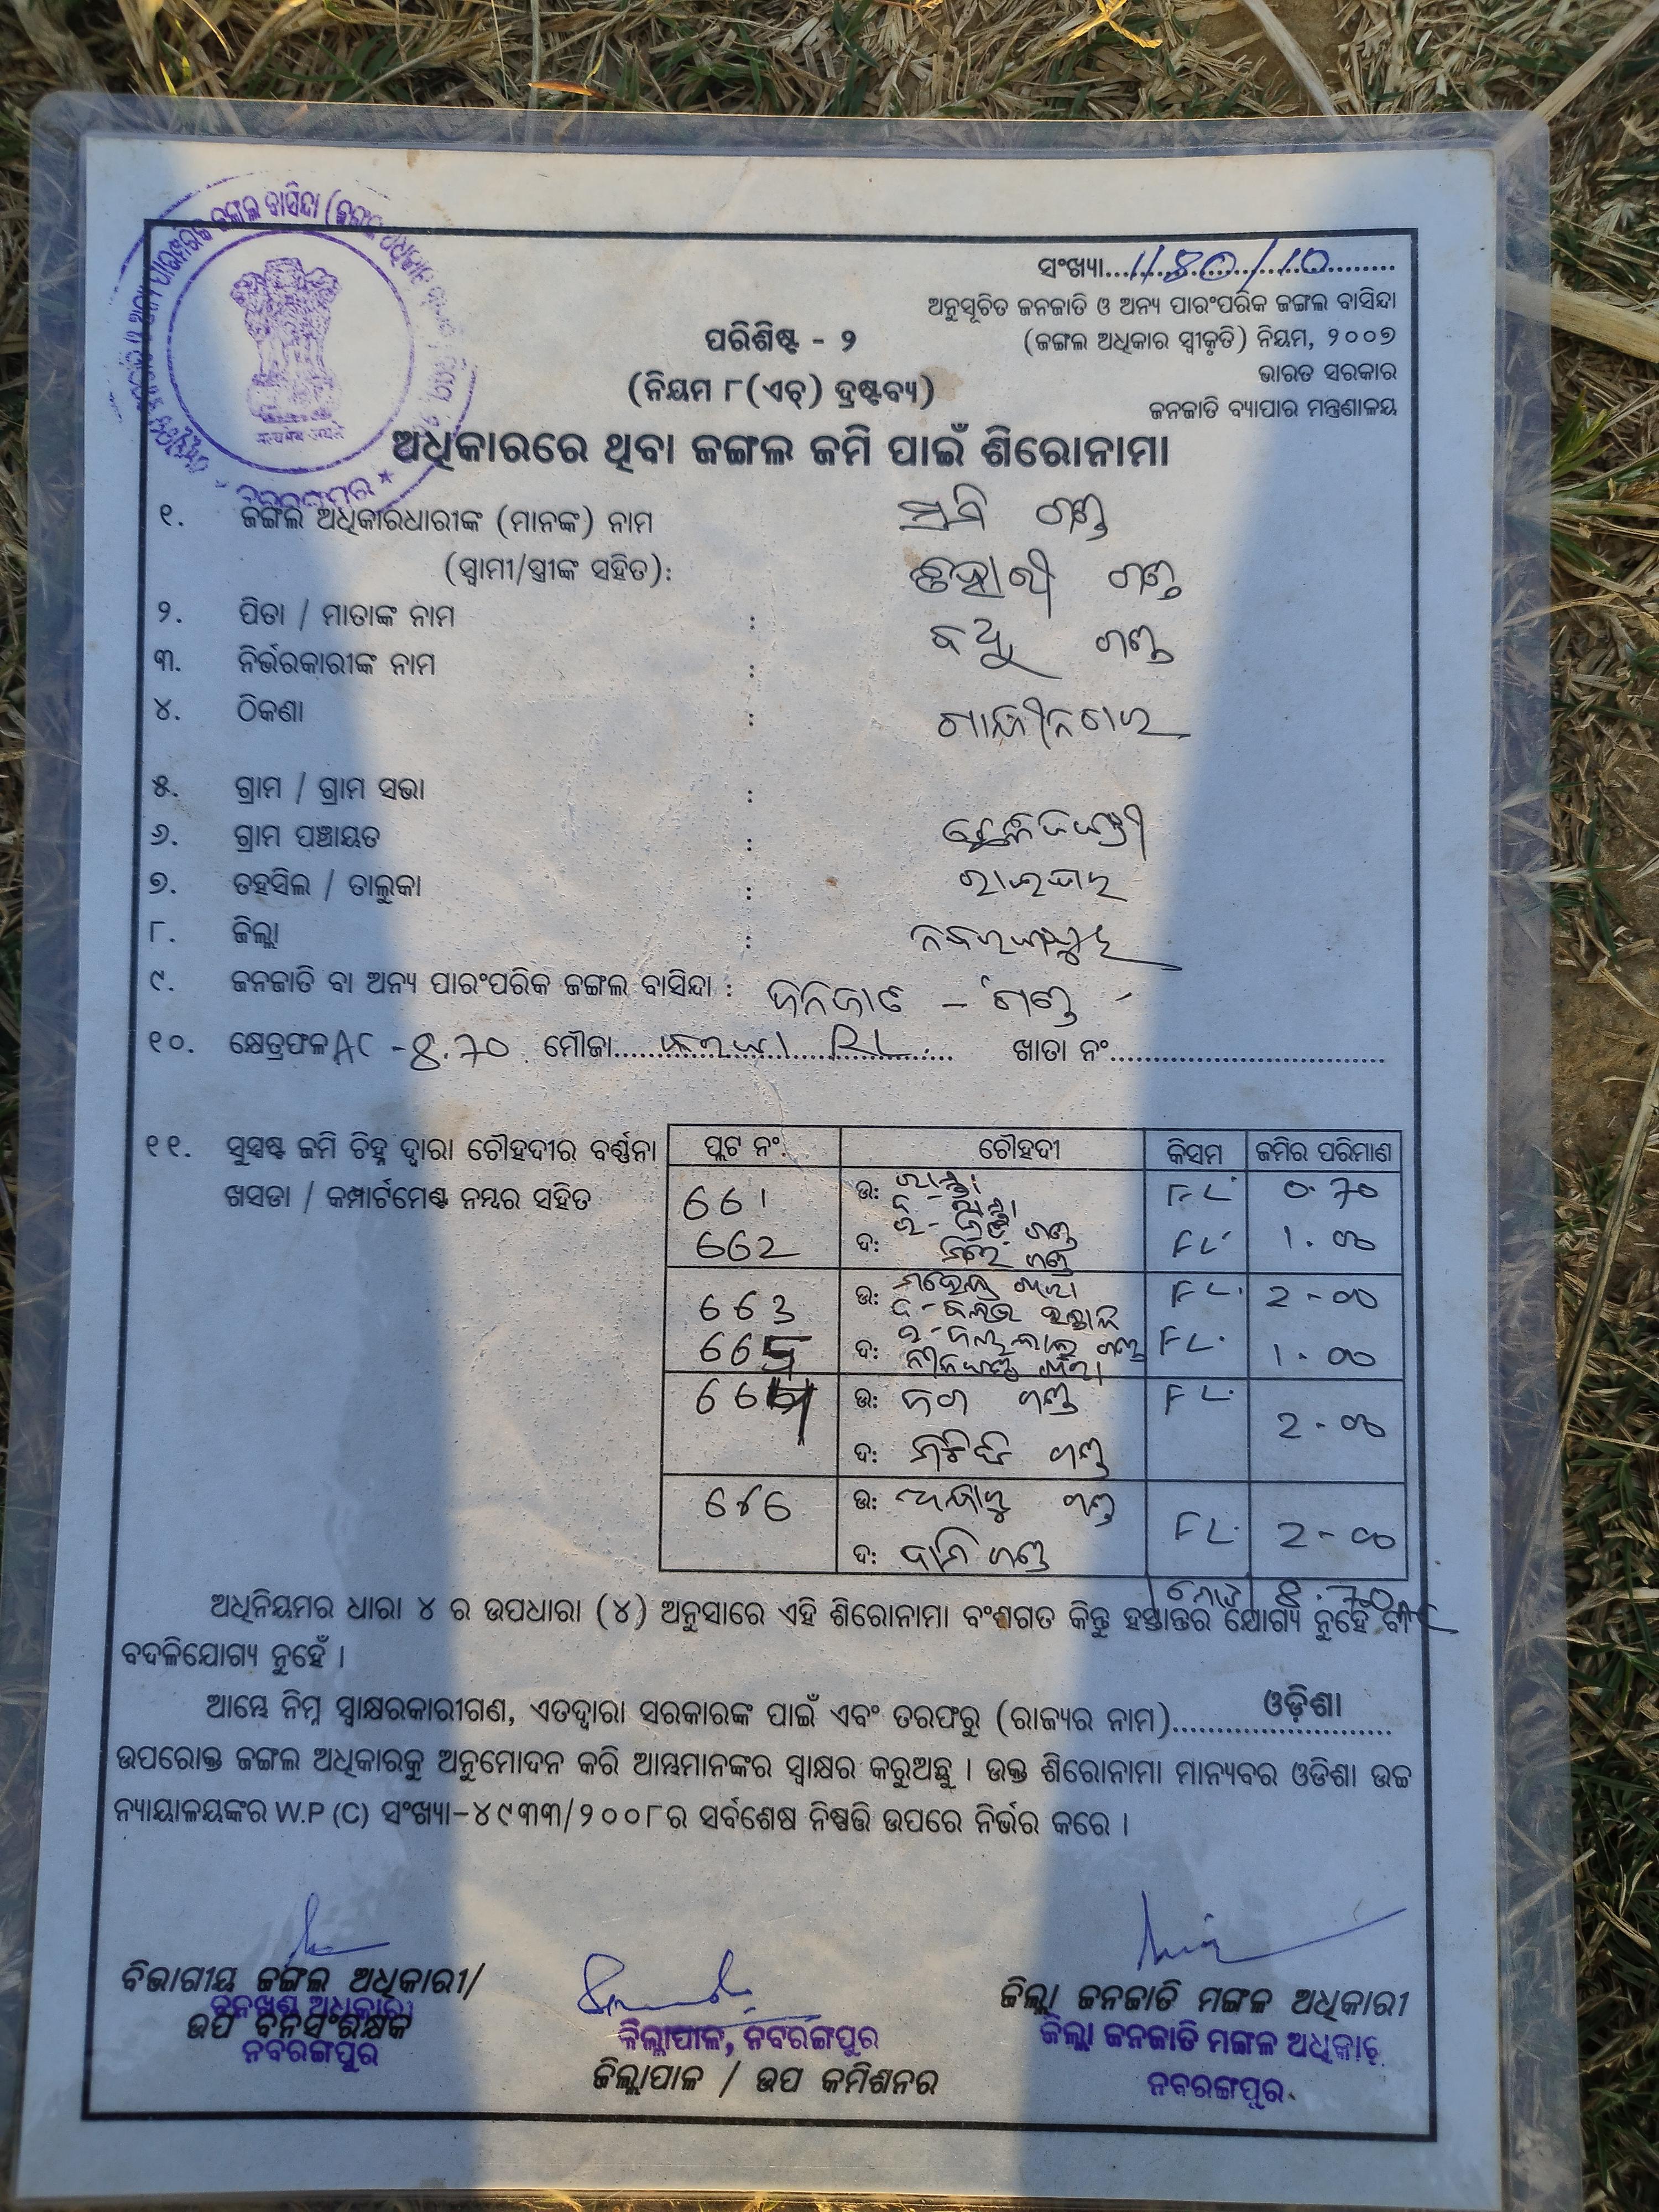 ସଂଖ୍ୟା....1180/10....
ଅନୁସୂଚିତ ଜନଜାତି ଓ ଅନ୍ୟ ପାରଂପରିକ ଜଙ୍ଗଲ ବାସିନ୍ଦା
(ଜଙ୍ଗଲ ଅଧିକାର ସ୍ୱୀକୃତି) ନିୟମ, ୨୦୦୭
ଭାରତ ସରକାର
ଜନଜାତି ବ୍ୟାପାର ମନ୍ତ୍ରଣାଳୟ
ପରିଶିଷ୍ଟ - ୨
(ନିୟମ ୮(ଏଚ୍) ଦ୍ରଷ୍ଟବ୍ୟ)
ଅଧିକାରରେ ଥିବା ଜଙ୍ଗଲ ଜମି ପାଇଁ ଶିରୋନାମା
୧. ଜଙ୍ଗଲ ଅଧିକାରଧାରୀଙ୍କ (ମାନଙ୍କ) ନାମ ଗଣ୍ଡ
(ସ୍ୱାମୀ/ସ୍ତ୍ରୀଙ୍କ ସହିତ): ଗଣ୍ଡ
୨. ପିତା / ମାତାଙ୍କ ନାମ : ଗଣ୍ଡ
୩. ନିର୍ଭରକାରୀଙ୍କ ନାମ :
୪. ଠିକଣା : ଗାନ୍ଧୀନଗର
୫. ଗ୍ରାମ / ଗ୍ରାମ ସଭା :
୬. ଗ୍ରାମ ପଞ୍ଚାୟତ :
୭. ତହସିଲ / ତାଲୁକା : ରାଇଘର
୮. ଜିଲ୍ଲା : ନବରଙ୍ଗପୁର
୯. ଜନଜାତି ବା ଅନ୍ୟ ପାରଂପରିକ ଜଙ୍ଗଲ ବାସିନ୍ଦା : ଜନଜାତି - ଗଣ୍ଡ
୧୦. କ୍ଷେତ୍ରଫଳ AC - 8.70 ମୌଜା.... RL.... ଖାତା ନଂ....
୧୧. ସୁସ୍ପଷ୍ଟ ଜମି ଚିହ୍ନ ଦ୍ୱାରା ଚୌହଦୀର ବର୍ଣ୍ଣନା
ଖସଡା / କମ୍ପାର୍ଟମେଣ୍ଟ ନମ୍ବର ସହିତ
ପ୍ଲଟ ନଂ. ଚୌହଦୀ କିସମ ଜମିର ପରିମାଣ
661 ଉ: ରାସ୍ତା FL. 0.70
662 ଦ: ଗଣ୍ଡ FL. 1.00
663 ଉ: FL. 2-00
665 ଦ: FL. 1.00
664 ଉ: ଗଣ୍ଡ FL. 2-00
ଦ: ଗଣ୍ଡ
646 ଉ: ଗଣ୍ଡ FL. 2-00
ଦ: ଗଣ୍ଡ
ମୋଟ 8.70 AC
ଅଧିନିୟମର ଧାରା ୪ ର ଉପଧାରା (୪) ଅନୁସାରେ ଏହି ଶିରୋନାମା ବଂଶଗତ କିନ୍ତୁ ହସ୍ତାନ୍ତର ଯୋଗ୍ୟ ନୁହେଁ ବା
ବଦଳିଯୋଗ୍ୟ ନୁହେଁ ।
ଆମ୍ଭେ ନିମ୍ନ ସ୍ୱାକ୍ଷରକାରୀଗଣ, ଏତଦ୍ୱାରା ସରକାରଙ୍କ ପାଇଁ ଏବଂ ତରଫରୁ (ରାଜ୍ୟର ନାମ)....ଓଡ଼ିଶା....
ଉପରୋକ୍ତ ଜଙ୍ଗଲ ଅଧିକାରକୁ ଅନୁମୋଦନ କରି ଆମ୍ଭମାନଙ୍କର ସ୍ୱାକ୍ଷର କରୁଅଛୁ । ଉକ୍ତ ଶିରୋନାମା ମାନ୍ୟବର ଓଡିଶା ଉଚ୍ଚ
ନ୍ୟାୟାଳୟଙ୍କର W.P (C) ସଂଖ୍ୟା-୪୯୩୩/୨୦୦୮ର ସର୍ବଶେଷ ନିଷ୍ପତ୍ତି ଉପରେ ନିର୍ଭର କରେ ।
ବିଭାଗୀୟ ଜଙ୍ଗଲ ଅଧିକାରୀ/
ବନଖଣ୍ଡ ଅଧିକାରୀ
ଉପ ବନସଂରକ୍ଷକ
ନବରଙ୍ଗପୁର
ଜିଲ୍ଲାପାଳ, ନବରଙ୍ଗପୁର
ଜିଲ୍ଲାପାଳ / ଉପ କମିଶନର
ଜିଲ୍ଲା ଜନଜାତି ମଙ୍ଗଳ ଅଧିକାରୀ
ଜିଲ୍ଲା ଜନଜାତି ମଙ୍ଗଳ ଅଧିକାରୀ
ନବରଙ୍ଗପୁର